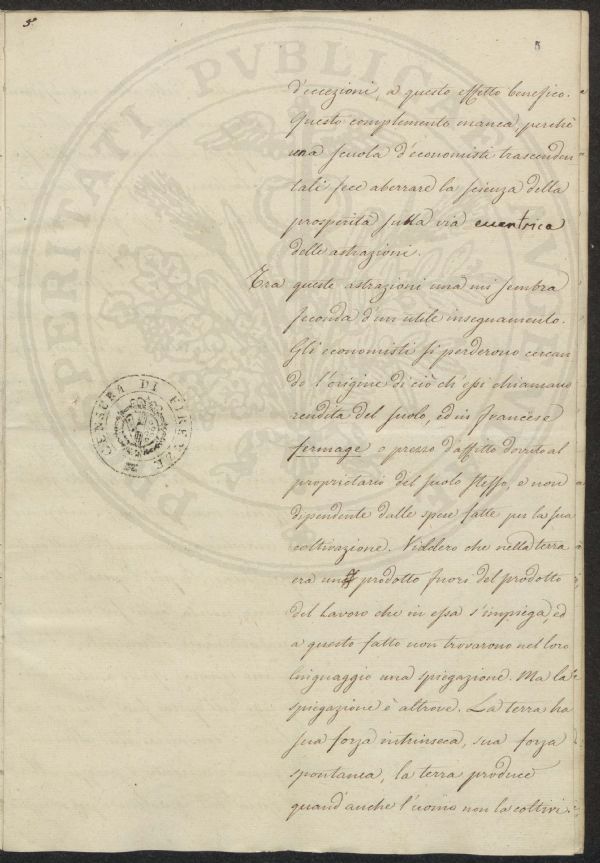 3°
5
d'eccezioni, a questo effetto benefico.
Questo complemento manca, perchè
una scuola d'economisti trascenden-
tali fece aberrare la scienza della
prosperità sulla via eccentrica
delle astrazioni.
Tra queste astrazioni una mi sembra
feconda d'un utile insegnamento.
Gli economisti si perderono cercan
do l'origine di ciò ch'essi chiamano
rendita del suolo, ed in francese
fermage o prezzo d'affitto dovuto al
proprietario del suolo stesso, e non
dipendente dalle spese fatte per la sua
coltivazione. Viddero che nella terra
era un prodotto fuori del prodotto
del lavoro che in essa s'impiega, ed
a questo fatto non trovarono nel loro
linguaggio una spiegazione. Ma la
spiegazione è altrove. La terra ha
sua forza intrinseca, sua forza
spontanea, la terra produce
quand'anche l'uomo non la coltivi.
CENSURA DI FIRENZE